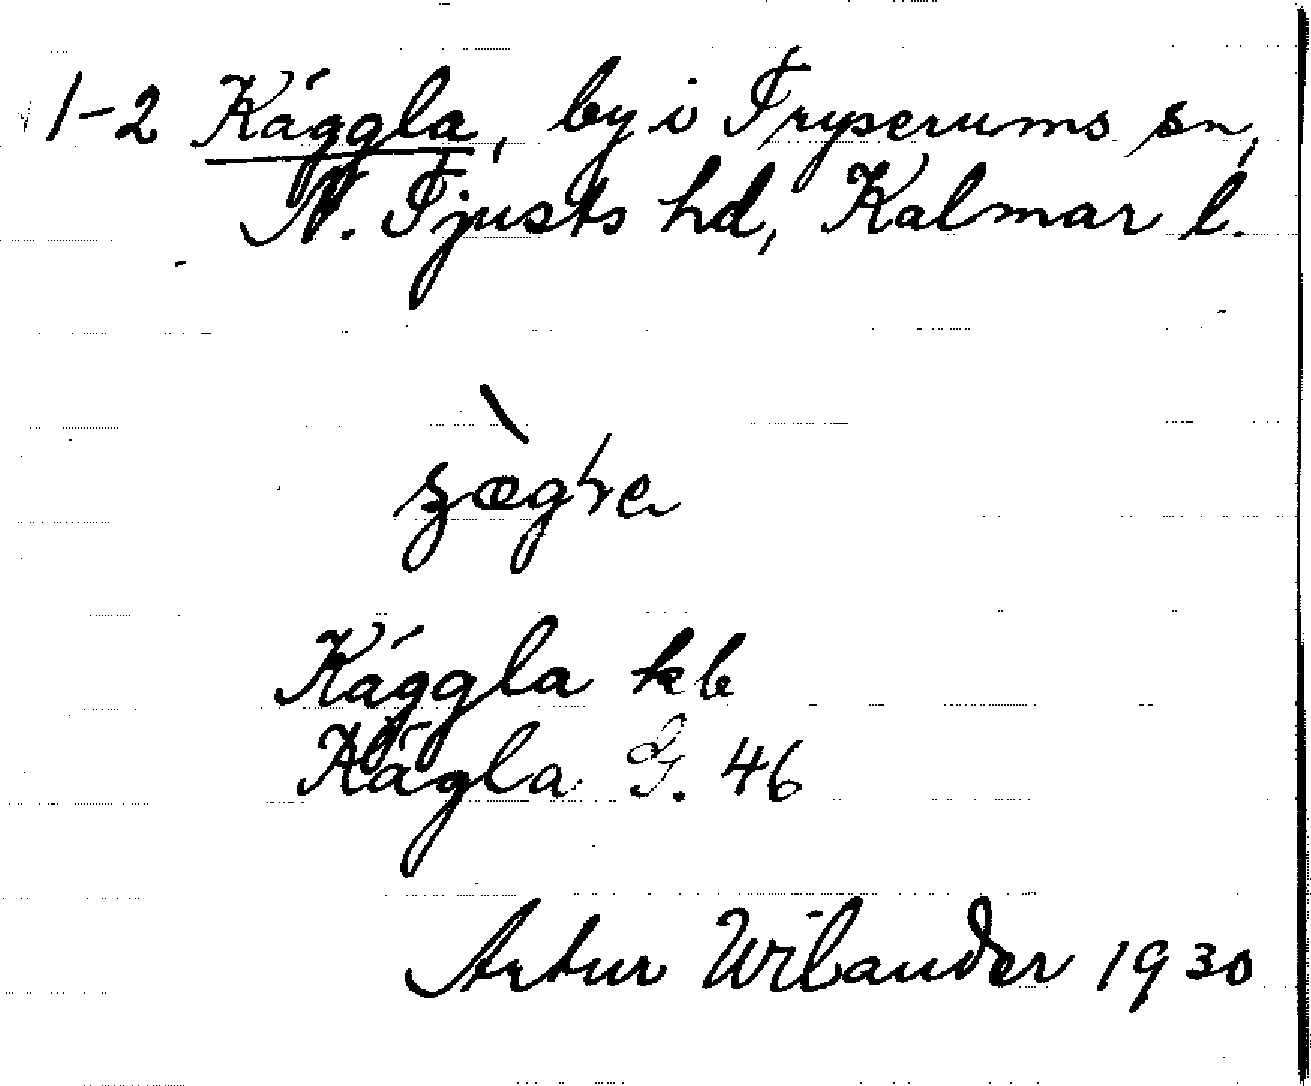 1-2 Käggla, by i Tryserums sn,
N. Tjusts hd, Kalmar l.
Käggla kb
Kägla G. 46
Artur Wilander 1930